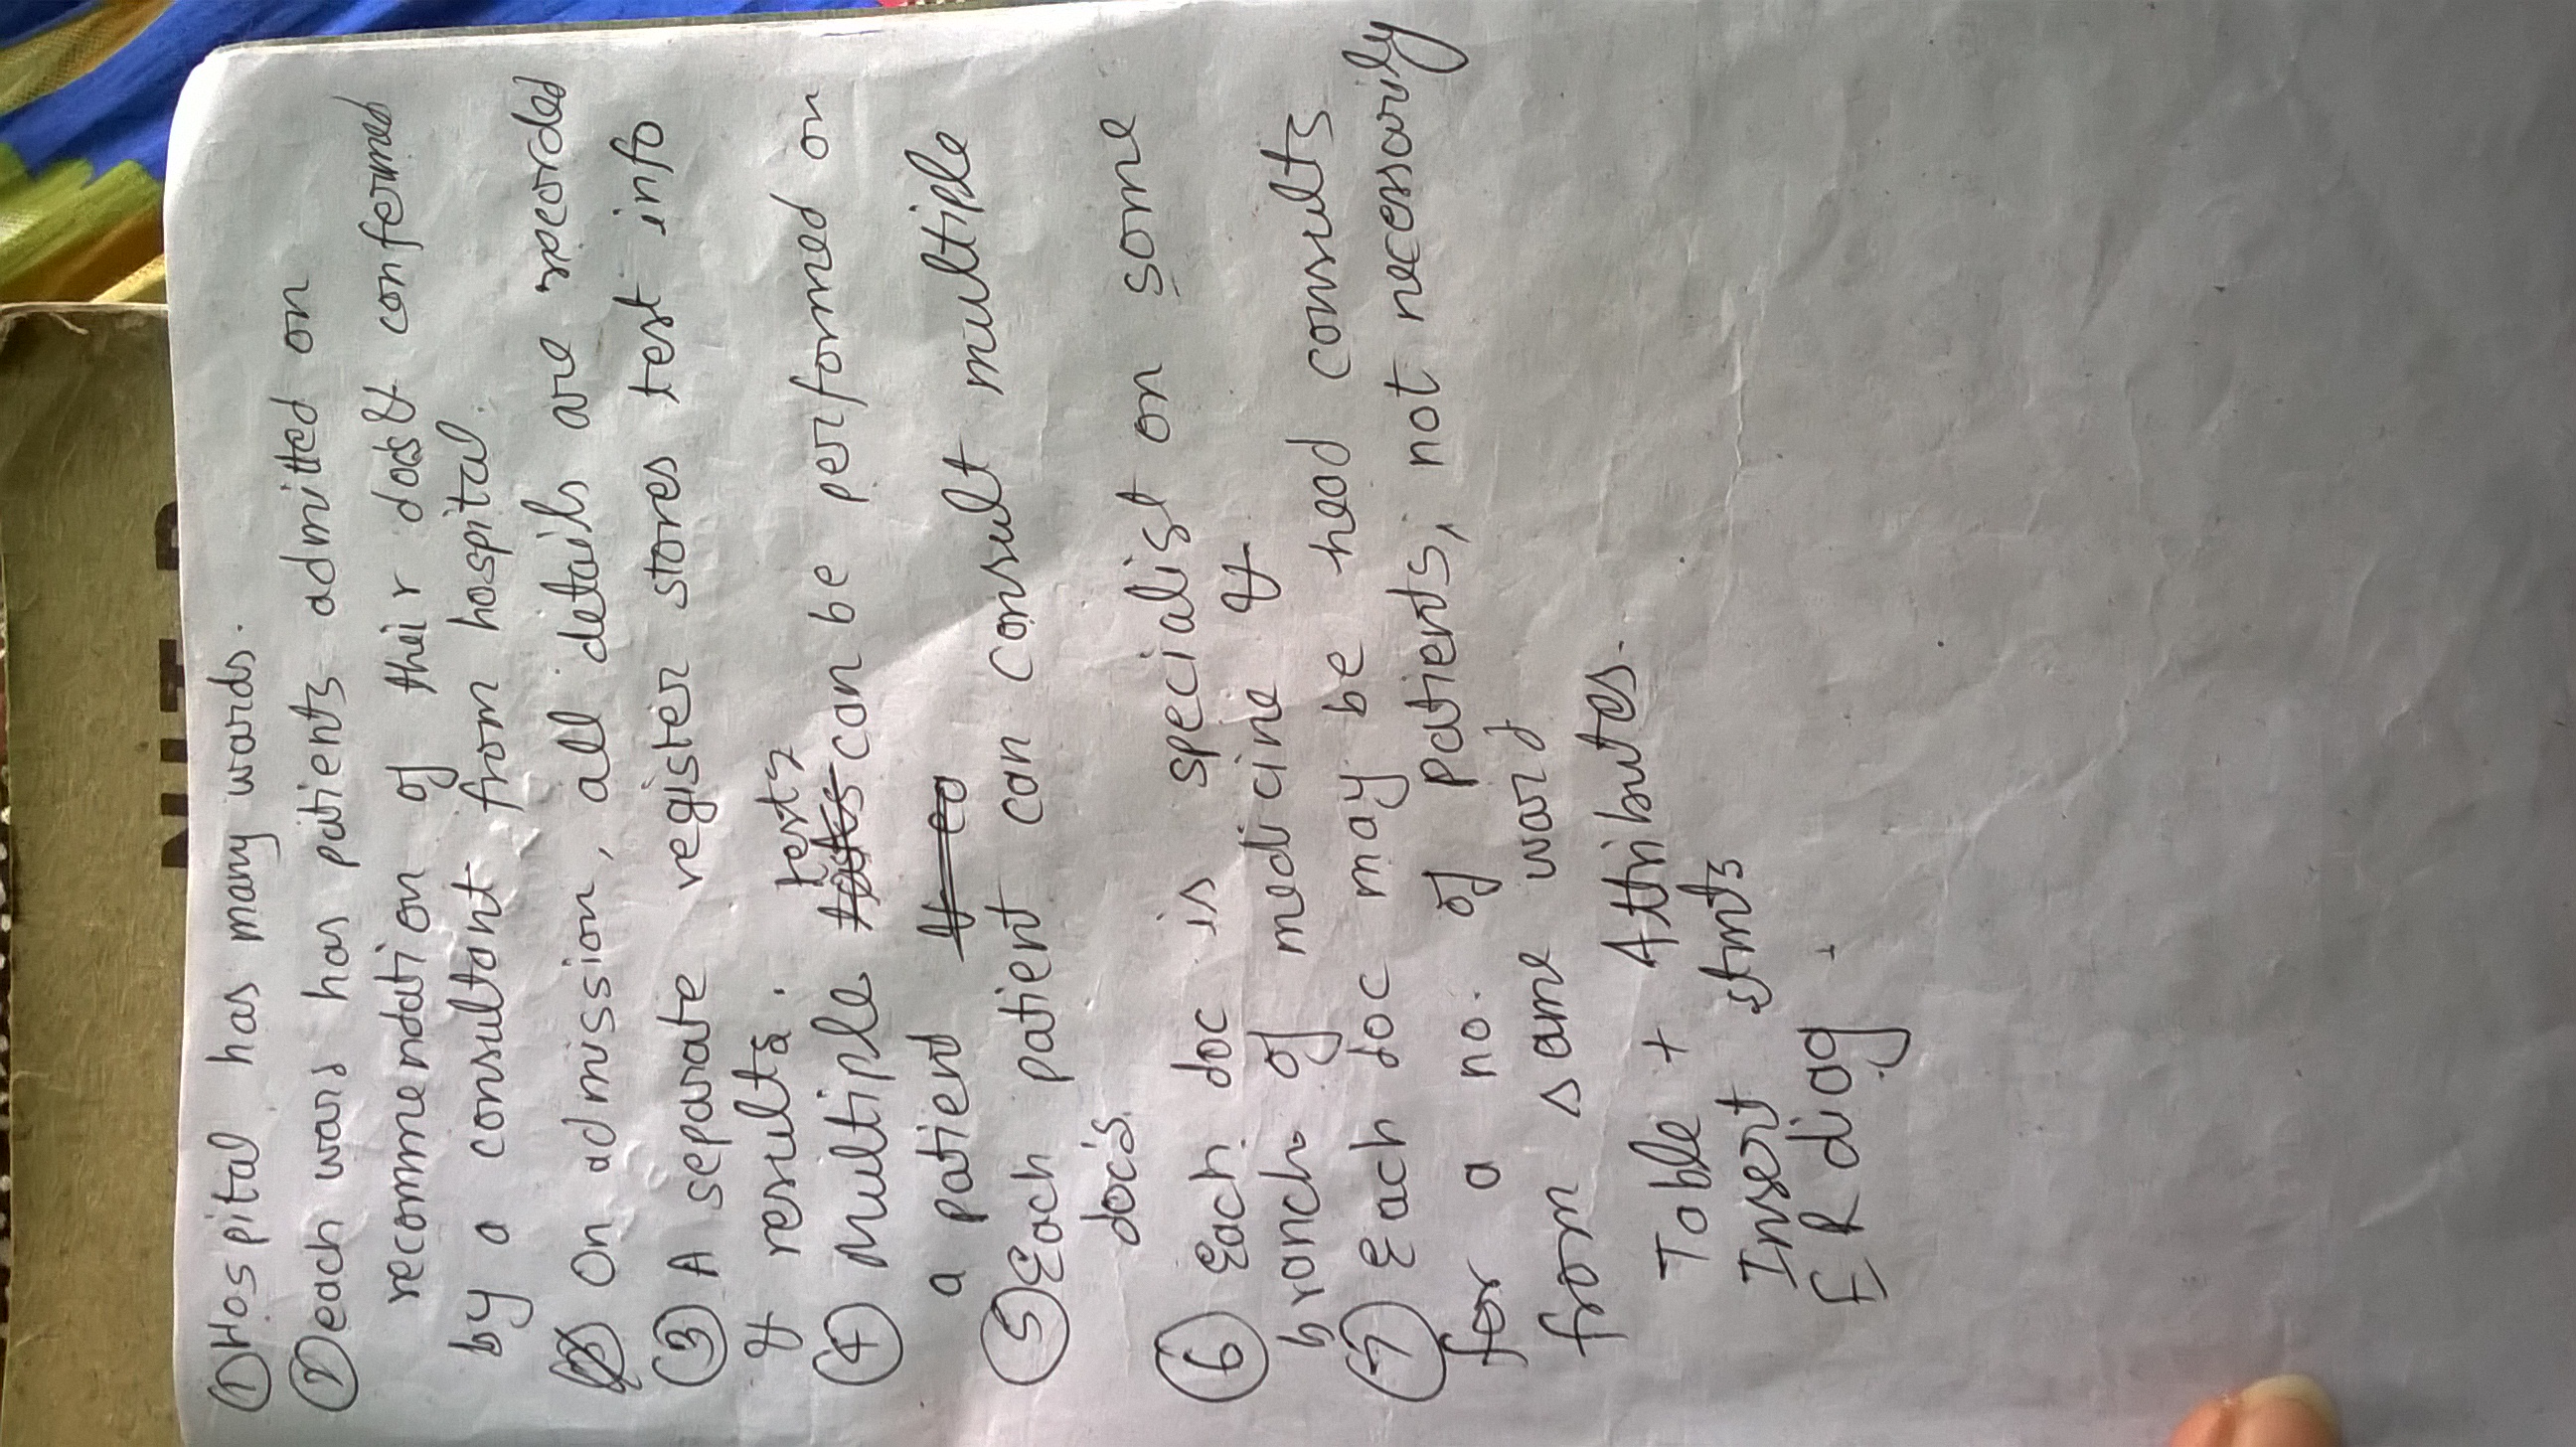 ① Hospital has many wards.
② each ward has patients admitted on
recommendation of their docs & confermed
by a consultant from hospital.
On admission, all details are recorded
③ A separate register stores test info
& results.
tests
④ Multiple can be performed on
a patient
⑤ Each patient can consult multiple
docs.
⑥ Each doc is specialist on some
branch of medicine &
⑦ Each doc may be head consults
for a no. of patients, not necessarily
from same ward
Table + Attributes.
Insert stmts
ER diag.